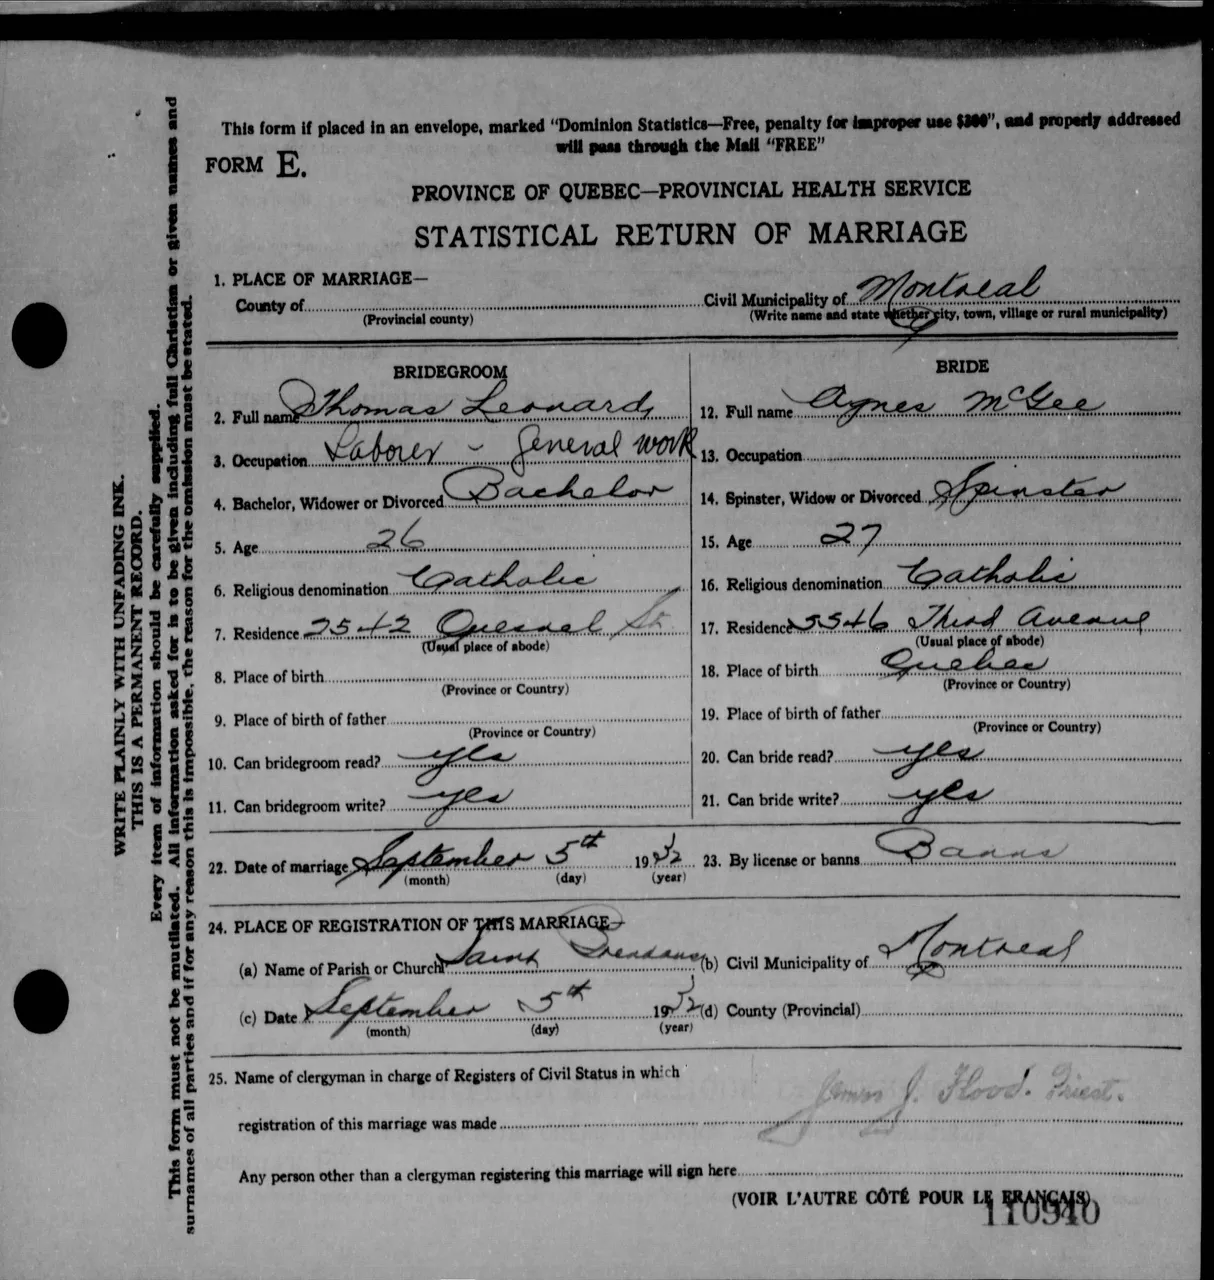 This form if placed in an envelope, marked "Dominion Statistics—Free, penalty for improper use $300", and properly addressed
will pass through the Mail "FREE"
FORM E.
PROVINCE OF QUEBEC—PROVINCIAL HEALTH SERVICE
STATISTICAL RETURN OF MARRIAGE
1. PLACE OF MARRIAGE—
County of Civil Municipality of Montreal
(Provincial county) (Write name and state whether city, town, village or rural municipality)
BRIDEGROOM
2. Full name Thomas Leonard
3. Occupation Laborer - general work
4. Bachelor, Widower or Divorced Bachelor
5. Age 26
6. Religious denomination Catholic
7. Residence 2542 Quesnel St.
(Usual place of abode)
8. Place of birth
(Province or Country)
9. Place of birth of father
(Province or Country)
10. Can bridegroom read? yes
11. Can bridegroom write? yes
BRIDE
12. Full name Agnes McGee
13. Occupation
14. Spinster, Widow or Divorced Spinster
15. Age 27
16. Religious denomination Catholic
17. Residence 5546 Third Avenue
(Usual place of abode)
18. Place of birth Quebec
(Province or Country)
19. Place of birth of father
(Province or Country)
20. Can bride read? yes
21. Can bride write? yes
22. Date of marriage September 5th 1932 23. By license or banns Banns
(month) (day) (year)
24. PLACE OF REGISTRATION OF THIS MARRIAGE—
(a) Name of Parish or Church Saint Brendans (b) Civil Municipality of Montreal
(c) Date September 5th 1932 (d) County (Provincial)
(month) (day) (year)
25. Name of clergyman in charge of Registers of Civil Status in which
registration of this marriage was made James J. Flood. Priest.
Any person other than a clergyman registering this marriage will sign here
(VOIR L'AUTRE CÔTÉ POUR LE FRANÇAIS)
110940
WRITE PLAINLY WITH UNFADING INK.
THIS IS A PERMANENT RECORD.
Every item of information should be carefully supplied.
This form must not be mutilated. All information asked for is to be given including full Christian or given names and
surnames of all parties and if for any reason this is impossible, the reason for the omission must be stated.